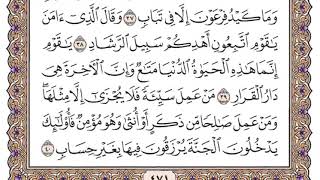 وَمَا كَيْدُ فِرْعَوْنَ إِلَّا فِي تَبَابٍ ٣٧ وَقَالَ الَّذِي ءَامَنَ
يَٰقَوْمِ اتَّبِعُونِ أَهْدِكُمْ سَبِيلَ الرَّشَادِ ٣٨ يَٰقَوْمِ
إِنَّمَا هَٰذِهِ الْحَيَوٰةُ الدُّنْيَا مَتَٰعٌ وَإِنَّ الْآخِرَةَ هِيَ
دَارُ الْقَرَارِ ٣٩ مَنْ عَمِلَ سَيِّئَةً فَلَا يُجْزَىٰ إِلَّا مِثْلَهَا
وَمَنْ عَمِلَ صَٰلِحًا مِّن ذَكَرٍ أَوْ أُنثَىٰ وَهُوَ مُؤْمِنٌ فَأُو۟لَٰٓئِكَ
يَدْخُلُونَ الْجَنَّةَ يُرْزَقُونَ فِيهَا بِغَيْرِ حِسَابٍ ٤٠
٤٧١